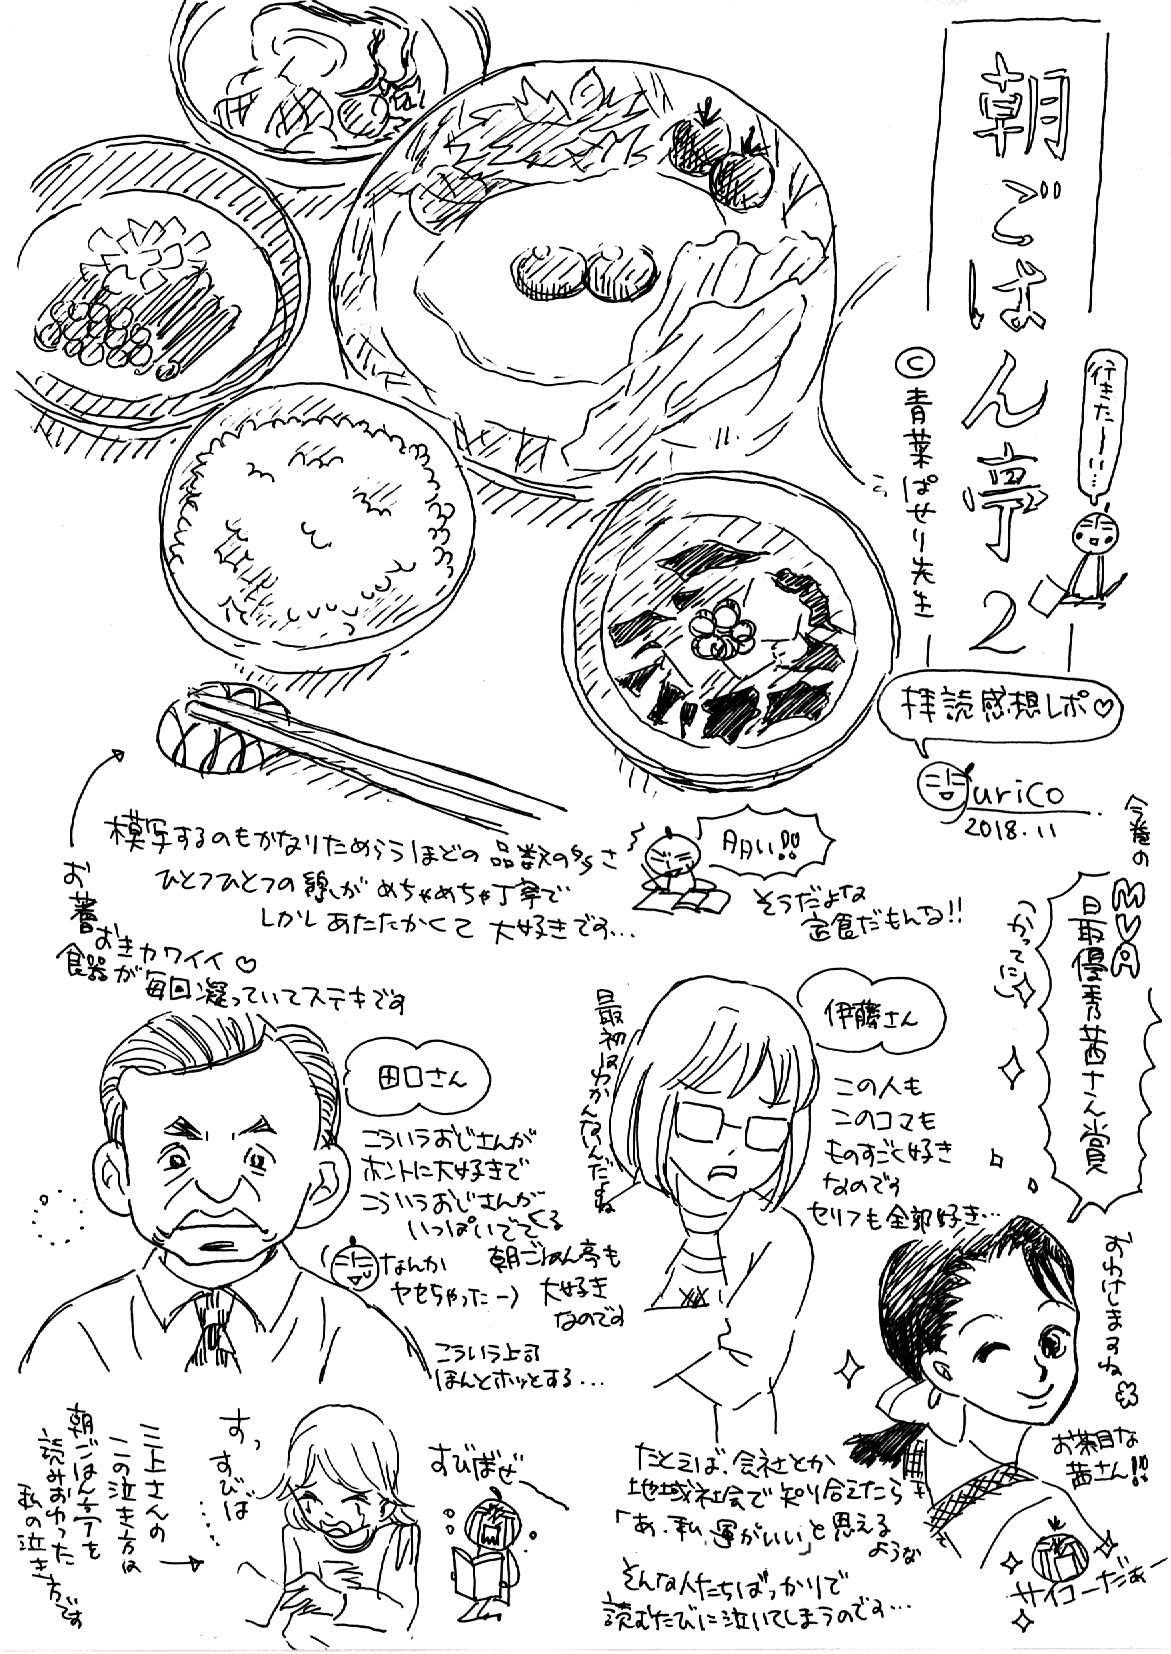 朝ごはん亭2
行きたーい…
©青葉ぱせり先生
拝読感想レポ♡
urico
2018.11
模写するのもかなりためらうほどの品数の多さ
ひとつひとつの線がめちゃめちゃ丁寧で
しかしあたたかくて大好きです…
お箸おきカワイイ♡
食器が毎回凝っていてステキです
そうだよな
定食だもんな!!
今巻の
MVA
最優秀茜さん賞
(かってに)
田口さん
こういうおじさんが
ホントに大好きで
こういうおじさんが
いっぱいでてくる
朝ごはん亭も
大好き
なのです
なんか
ヤセちゃったー)
こういう上司
ほんとホッとする…
伊藤さん
最初はわかんないんだよね
この人も
このコマも
ものすごく好き
なのです
セリフも全部好き…
おわけしますね
お茶目な
茜さん!!
サイコーだぁー
たとえば、会社とか
地域社会で知り合えたら
「あ、私、運がいい」と思える
ような
そんな人たちばっかりで
読むたびに泣いてしまうのです…
すっ
すびば…
すびばぜー
三上さんの
この泣き方は
朝ごはん亭を
読みおわった
私の泣き方です